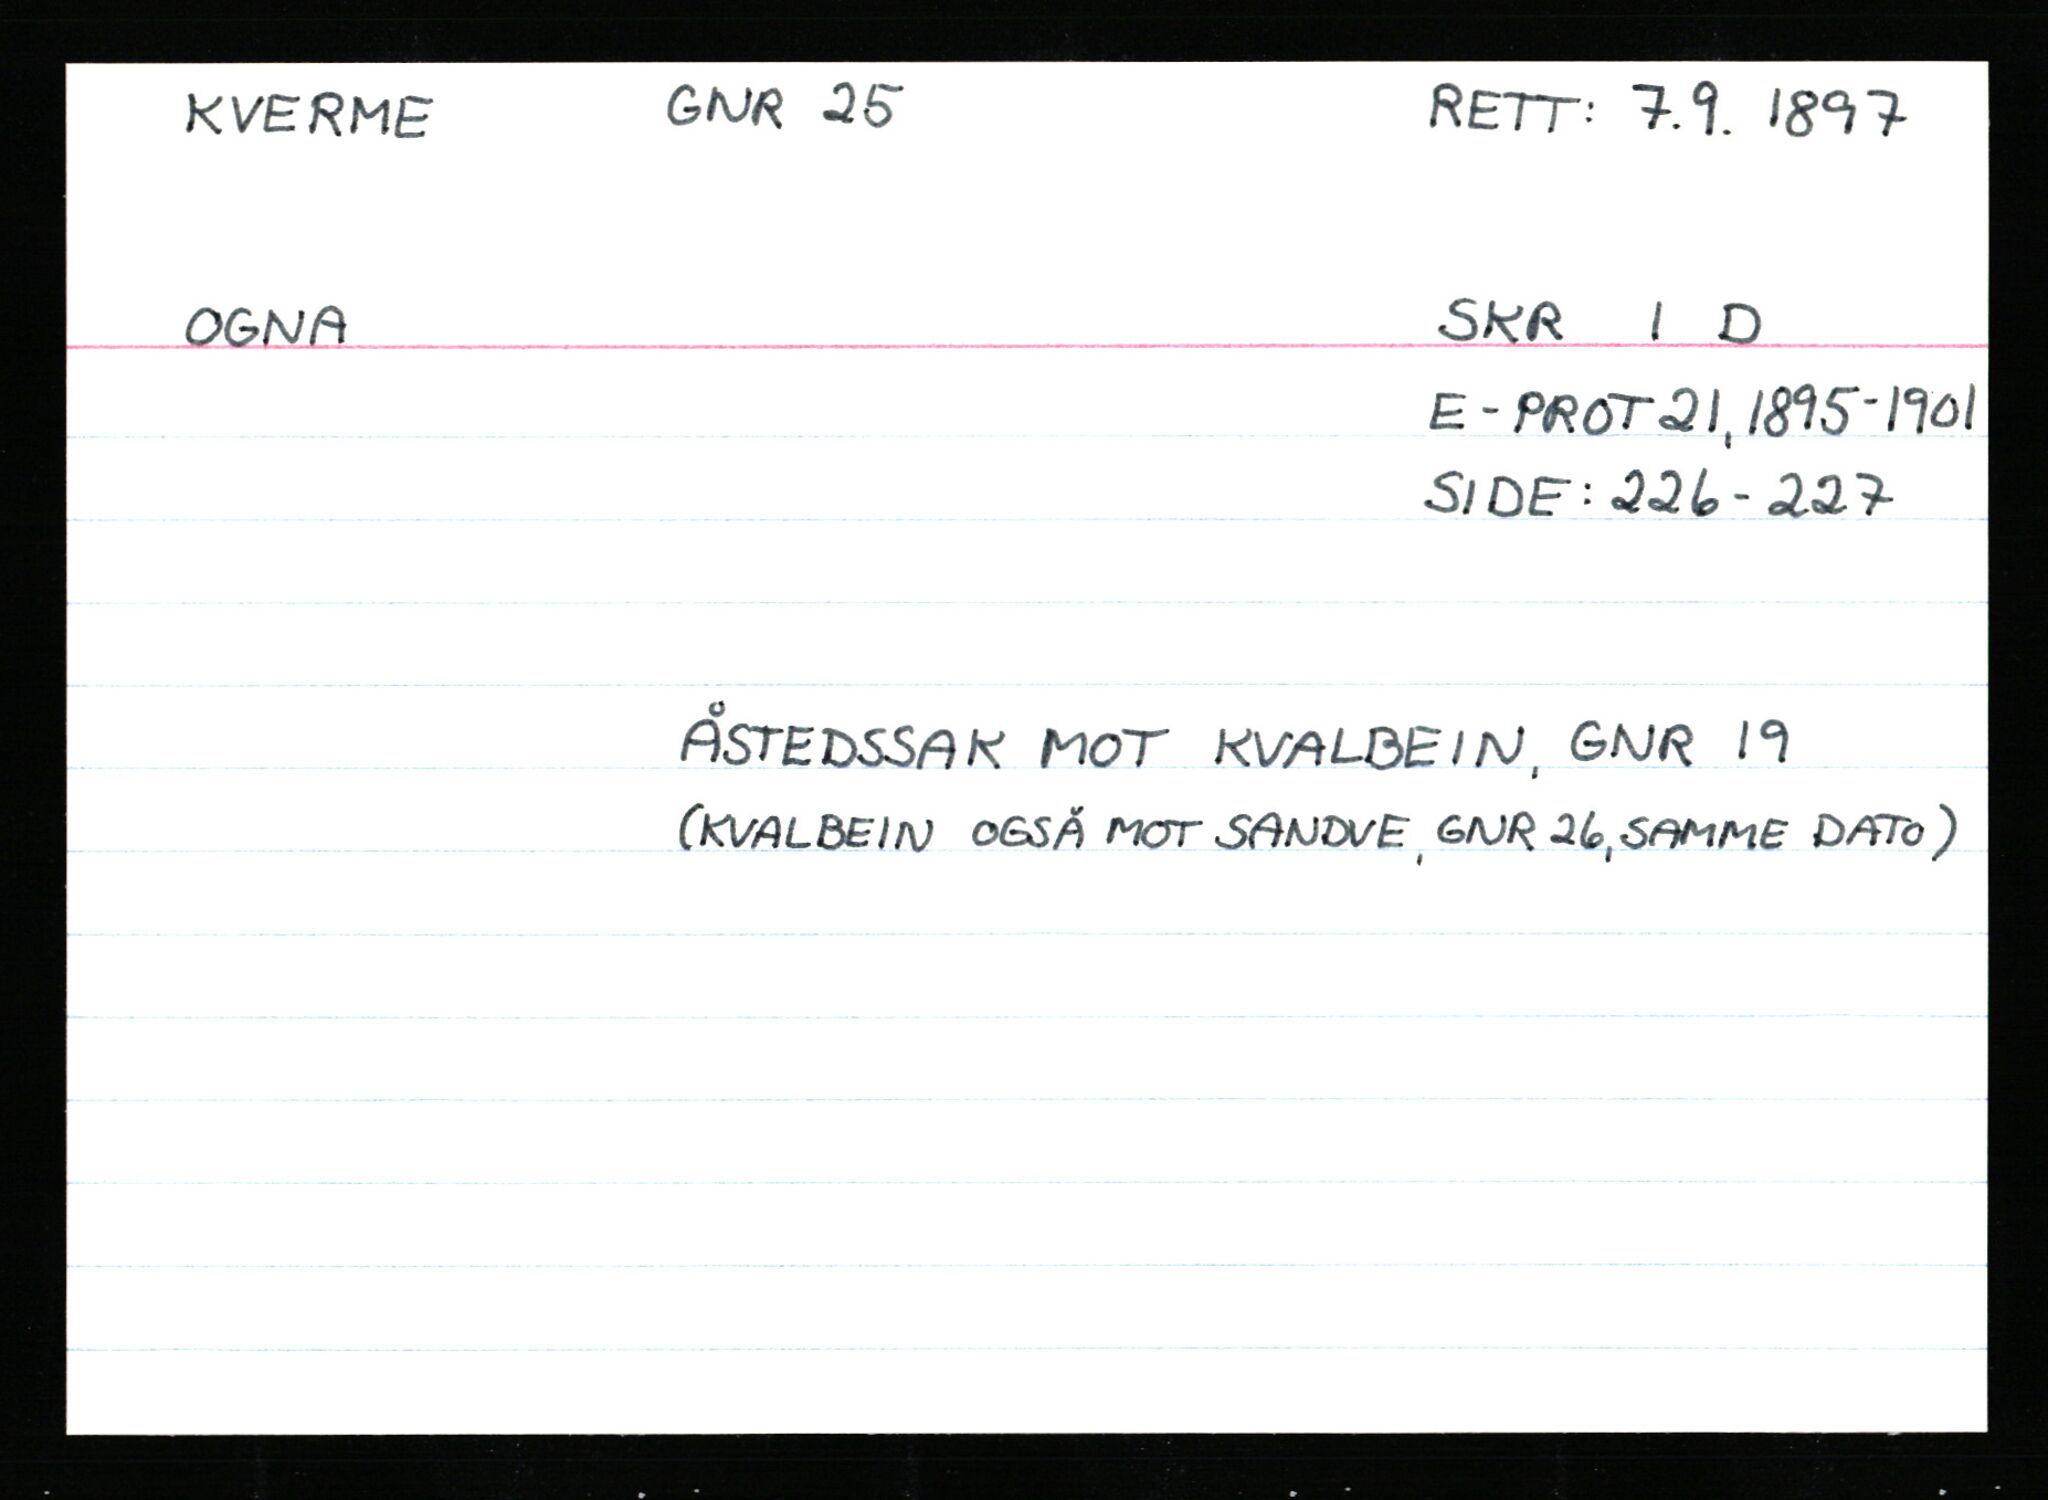 KVERME GNR 25 RETT: 7.9. 1897
OGNA SKR I D
E-PROT 21, 1895-1901
SIDE: 226-227
ÅSTEDSSAK MOT KVALBEIN, GNR 19
(KVALBEIN OGSÅ MOT SANDVE, GNR 26, SAMME DATO)